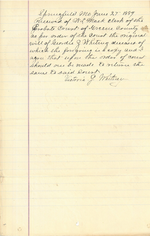 Springfield Mo June 27 1889
Received of W H Ward clerk of the
Probate Court of Greene County
as per order of the court the original
will of Amelia J Whitney deceased of
which the foregoing is a copy and I
agree that upon the order of court
should one be made to return the
same to said Court
J Whitney